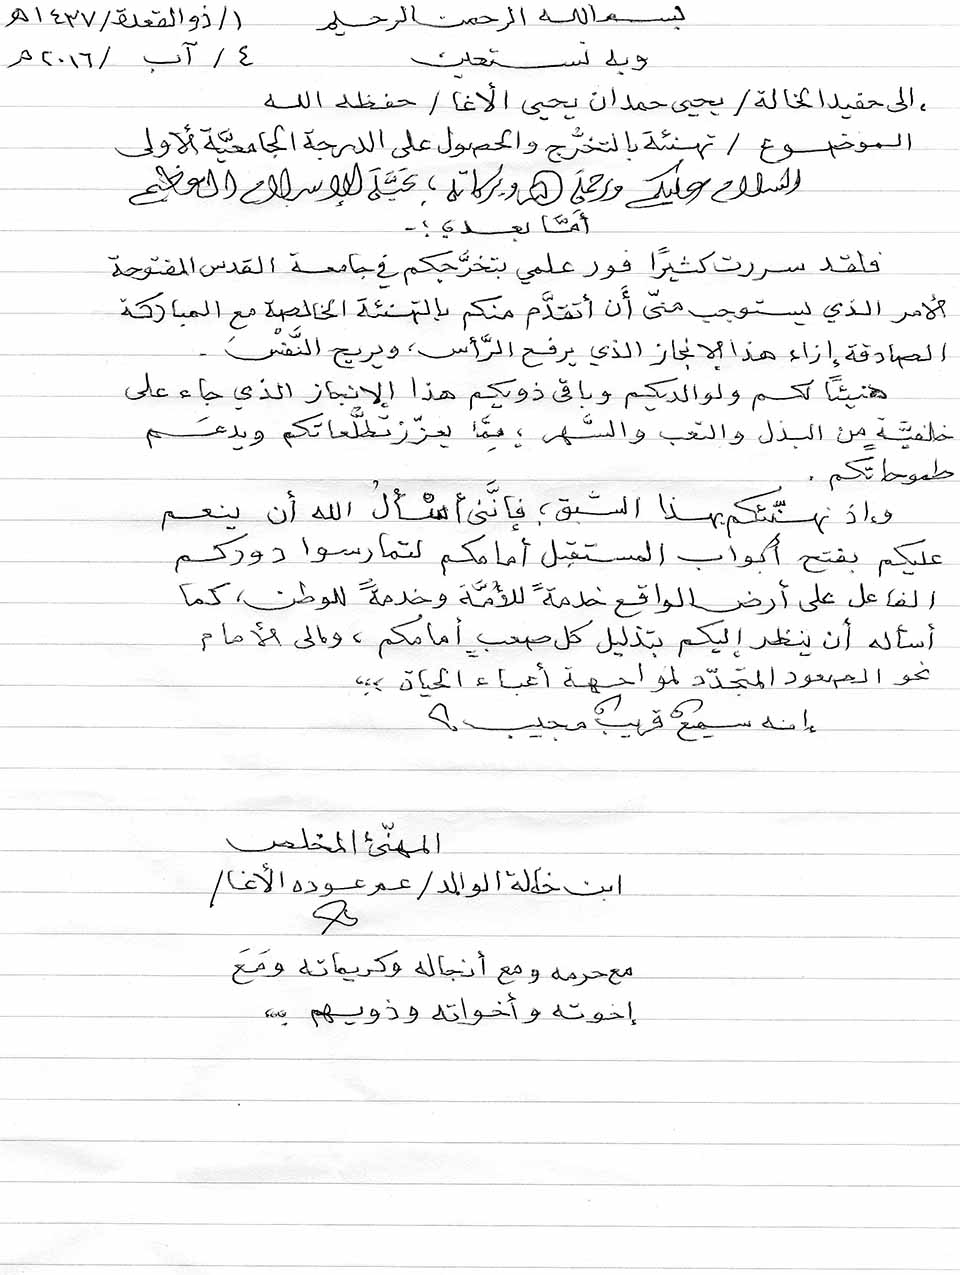 بسم الله الرحمن الرحيم ١/ذوالقعدة/١٤٣٧هـ
وبه نستعين ٤ / آب / ٢٠١٦م
إلى حفيد الخالة/ يحيى حمدان يحيى الأغا/ حفظه الله
الموضوع / تهنئة بالتخرُّج والحصول على الدرجة الجامعيَّة الأولى
السلام عليكم ورحمة الله وبركاته ؛ تحيَّة الإسلام العظيم
أمَّا بعد ؛-
فلقد سررت كثيرًا فور علمي بتخرُّجكم في جامعة القدس المفتوحة
الأمر الذي يستوجب منّي أن أتقدَّم منكم بالتهنئة الخالصة مع المباركة
الصادقة إزاء هذا الإنجاز الذي يرفع الرَّأس، ويريح النَّفْسَ .
هنيئًا لكم ولوالديكم وباقي ذويكم هذا الإنجاز الذي جاء على
خلفيَّةٍ من البذل والتعب والسَّهر ، مِمَّا يعزّز تطلُّعاتكم ويدعم
طموحاتكم .
وإذ نهنّئكم بهذا السَّبق؛ فإنَّني أسْألُ الله أن ينعم
عليكم بفتح أبواب المستقبل أمامكم لتمارسوا دوركم
الفاعل على أرض الواقع خدمةً للأمَّة وخدمةً للوطن، كما
أسأله أن ينظر إليكم بتذليل كل صعبٍ أمامكم ، وإلى الأمام
نحو الصعود المتجدّد لمواجهة أعباء الحياة ،،،
إنه سميعٌ قريبٌ مجيب
المهنّئ المخلص
ابن خالة الوالد/ عمر عوده الأغا/
مع حرمه ومع أنجاله وكريماته ومَعَ
إخوته وأخواته وذويهم ،،،